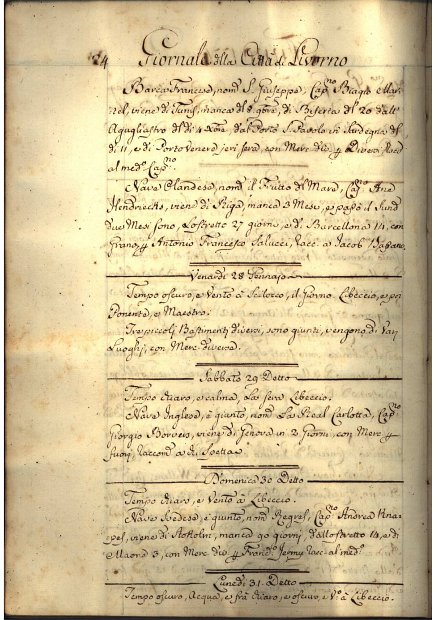 24 Giornale della Città di Livorno
Barca Francese, nom.ª S. Giuseppe, Cap.no Biagio
viene di Tunis, manca da 8 giorni, di Biserta
di 4 dal Porto S. Paolo in Sardegna
di 11, e di Porto Venere jeri sera, con Merc. die
al med.º Cap.no
Nave Olandese, nom.ª il Frutto del Mare, Cap.no Ane
Hendrickts, viene di Riga, manca 3 Mesi, e passò il Sund
due Mesi sono, lo Stretto 27 giorni, e di Barcellona 14, con
Grano, Antonio Francesco Salucci, Racc. a Jacob
Venardi 28 Gennajo
Tempo oscuro, e Vento à Scilocco, il giorno Libeccio, e poi
Ponente, e Maestro.
Tre piccoli Bastimenti diversi, sono giunti, vengono di Varj
Luoghi, con Merc. diverse.
Sabbato 29 Detto
Tempo chiaro, e calma, La sera Libeccio.
Nave Inglese, è giunto, nom.ª La Real Carlotta, Cap.no
Giorgio viene di Genova in 2 Giorni, con Merc.
fuori, Raccom.
Domenica 30 Detto
Tempo chiaro, e Vento à Libeccio.
Nave Svedese, è giunto, nom.ª Cap.no Andrea
viene di Stokolm, manca 90 giorni, dallo Stretto 14, e di
Maona 3, con Merc. die Franc.º Jermy Racc. al med.º
Lunedì 31 Detto
Tempo oscuro, Acqua, e frà chiaro, e oscuro, e V.º à Libeccio.